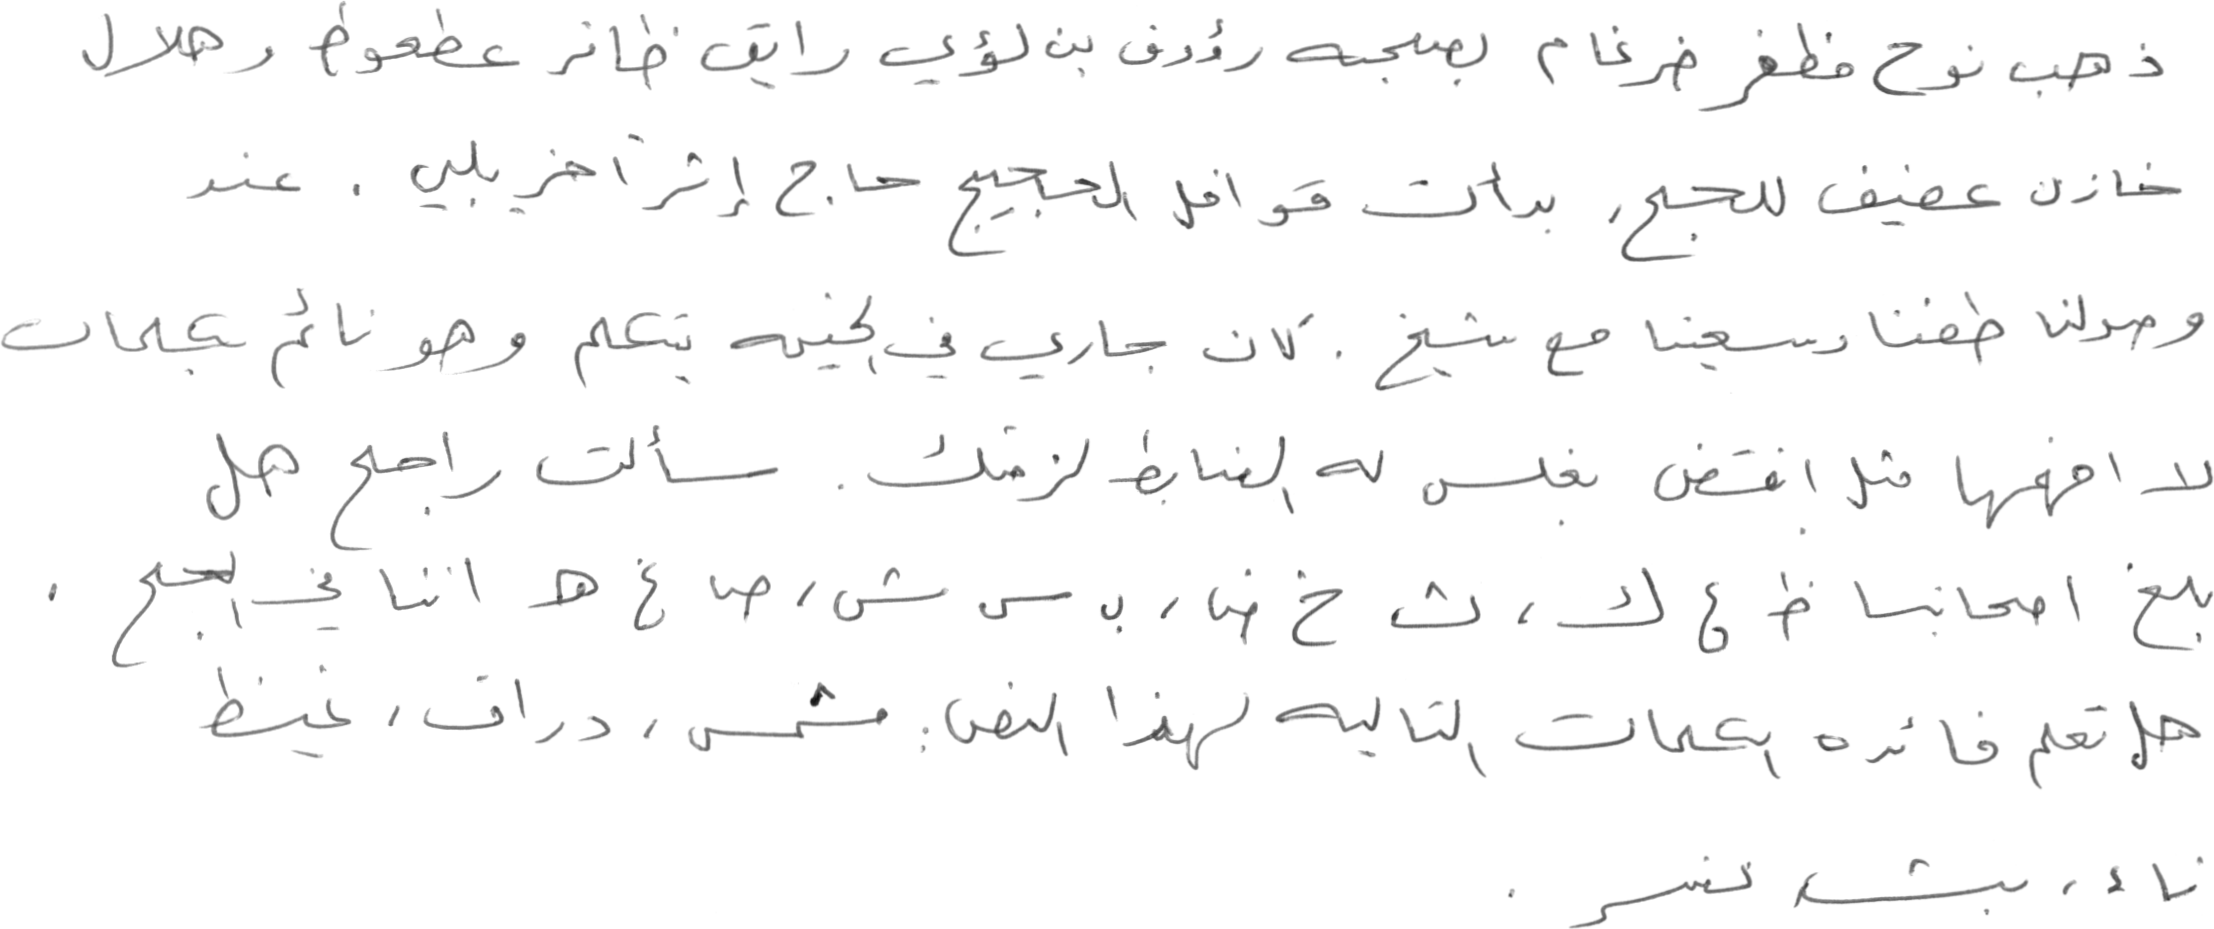 ذهب نوح مظفر ضرغام بصحبه رؤوف بن لؤي رايق ظافر عطعوط وهلال
خازن عفيف للحج، بدأت قوافل الحجيج حاج إثر آخر يلبي. عند
وصولنا طفنا وسعينا مع شيخ. كان جاري في الخيمه يتكلم وهو نائم بكلمات
لا افهمها مثل انقض بغلس له الضابط لزمتك. سألت راجح هل
بلغ اصحابنا ظ ع ك، ث خ ض، ب س ش، ص غ هـ اننا في الحج.
هل تعلم فائده الكلمات التاليه لهذا النص: مشمس، دراق، غيظ
ناء، بث، نفس.